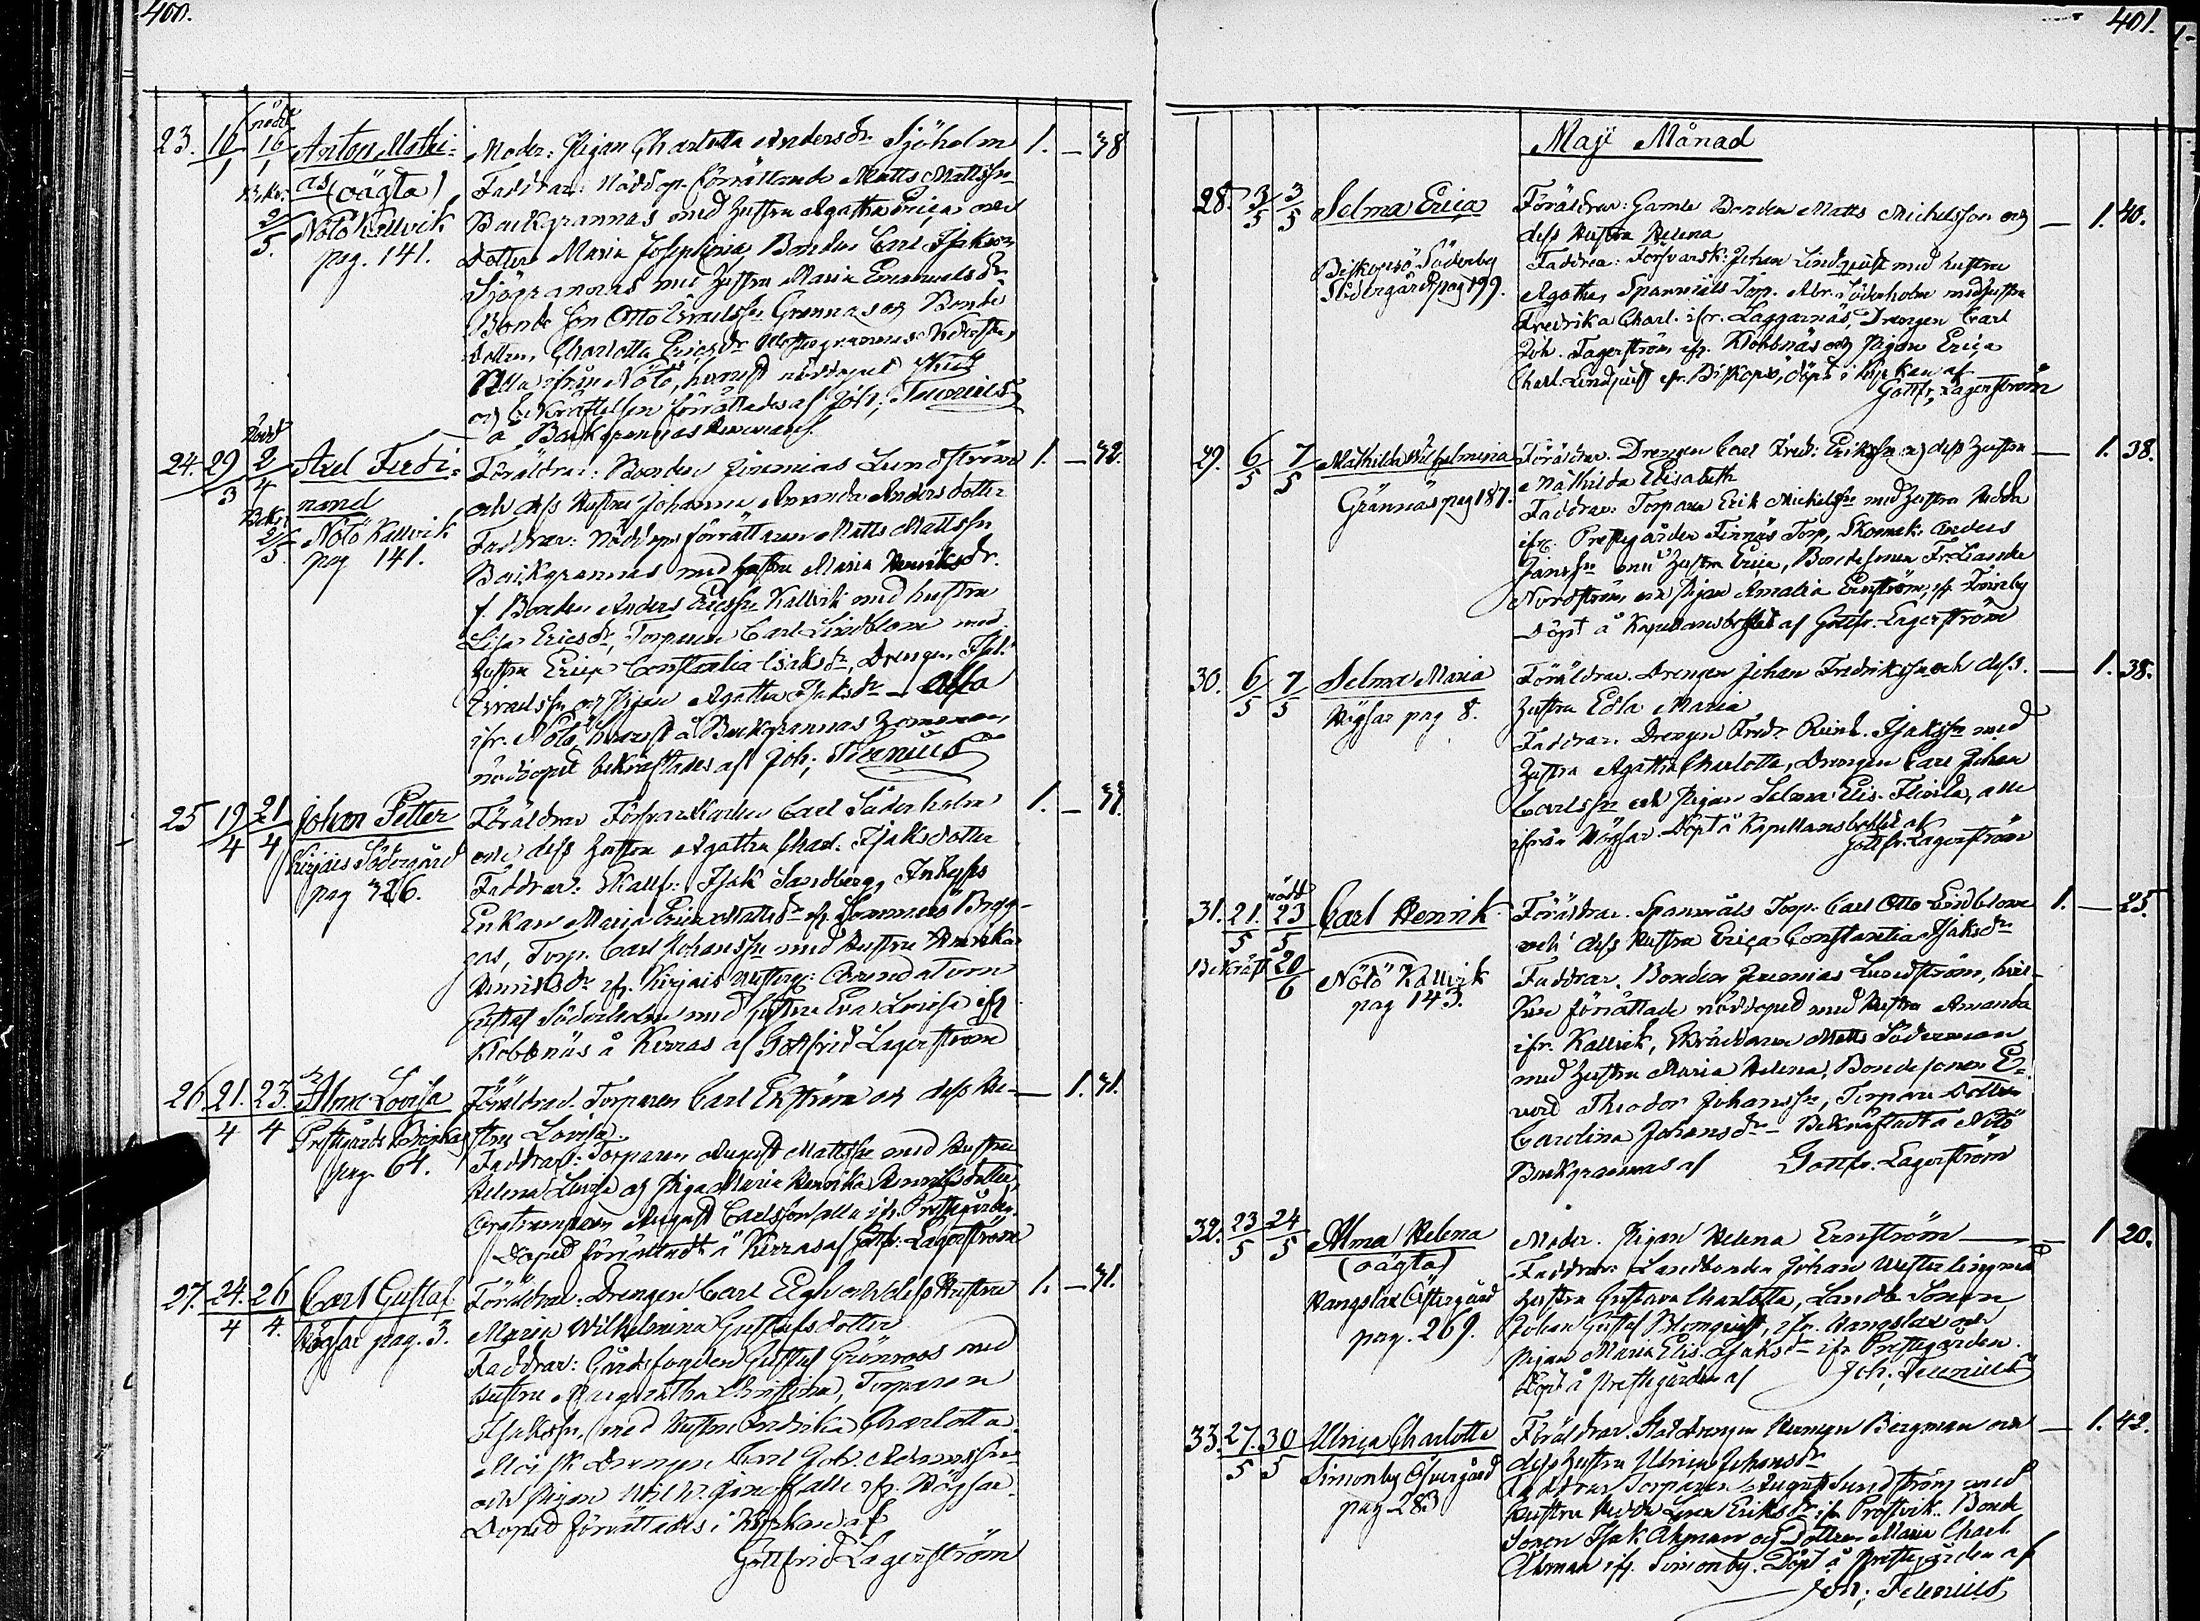 400.
23. 16/1 nöddöpt 16/1 Anton Mathi-
as (oägta)
Bekr. 2/5. Nötö Kallvik
pag. 141.
Moder: Pigan Charlotta Andersdr Sjöholm 1. — 38
Faddrar: Nöddop. förrättande Matts Mattssn
Backgrannas med hustru Agatha Erica och
dotter Maria Josephina, Bonden Carl Isaksson
Sjögrannas med hustru Maria Emanuelsdr
Bonde Son Otto Ersson Grannas och Bonde
dottern Charlotta Ericsdr
alla ifrån Nötö, hvarest nöddopet
och bekräftelsen förrättades af Joh. Telenius
å Backgrannas hemman.
24. 29/3 2/4 Axel Ferdi-
nand
Bekr. 2/5 Nötö Kallvik
pag 141.
Föräldrar: Bonden Jeremias Lundström 1. — 32.
och dess hustru Johanna Amanda Andersdotter
Faddrar: Nöddopsförrättaren Matts Mattssn
Backgrannas med hustru Maria Henriksdr.
f. Bonden Anders Ericssn Kallvik med hustru
Lisa Ericsdr, Torparen Carl Lindblom med
hustru Erica Constantia Isaksdr, Drengen
och Pigan Agatha Isaksdr — alla
ifr. Nötö, hvarest å Backgrannas hemman,
nöddopet bekräftades af Joh. Telenius
25 19/4 21/4 Johan Petter
Kirjais Södergård
pag 326.
Föräldrar Försvarskarlen Carl Söderholm 1. —
och dess hustru Agatha Charl. Isaksdotter
Faddrar: Skallf. Isak Sandberg, Inhyses
Enkan Maria Erica Mattsdr ifr.
Torp. Carl Johanssn med hustru Henrika
Henriksdr ifr. Kirjais Westerg.
Gustaf Söderholm med hustru Eva Lovisa ifr
Klobbnäs å Kirras af Gottfrid Lagerström
26 21/4 23/4 Alma Lovisa
Prestgårds Brinkas
pag. 64.
Föräldrar. Torparen Carl Ekström och dess hu- — 1. 31.
stru Lovisa.
Faddrar: Torparen August Mattssn med hustru
Helena Lovisa och Piga Maria Henrika Henriksdotter,
August Carlsson alla ifr. Prestgården.
Dopet förrättadt å Kirras af Gottfr. Lagerström
27. 24/4 26/4. Carl Gustaf
Högsar pag. 3.
Föräldrar: Drengen Carl Elgh och dess hustru 1. — 31.
Maria Wilhelmina Gustafsdotter
Faddrar: Gårdsfogden Gustaf Grönroos med
hustru Margaretha Christina, Torparen
Isakssn med hustru Fredrika Charlotta
Drengen Carl Joh. Adamssn
och Pigan alla ifr. Högsar.
Dopet förrättades i Kyrkan af
Gottfrid Lagerström
401.
Maji Månad
28. 3/5 3/5 Selma Erica
Biskopsö Söderby
Södergård pag 199.
Föräldrar: Gamle Bonden Matts Michelsson och — 1. 40.
dess hustru Helena
Faddrar: Försvarsk: Johan Lindqvist med hustru
Agatha, Spannmåls Torp. Abr. Söderholm med hustru
Fredrika Charl. ifr. Laggarnäs, Drengen Carl
Joh. Fagerström ifr. Klobbnäs och Pigan Erica
Charl. Lindqvist ifr. Biskopsö, döpt i kyrkan af
Gottfr. Lagerström
29. 6/5 7/5 Mathilda Wilhelmina
Grännäs pag 187.
Föräldrar. Drengen Carl Fred: Erikssn och dess hustru — 1. 38.
Mathilda Elisabeth
Faddrar: Torparen Erik Michelssn med hustru Hedda
ifr. Prestgården Finnäs Torp, Skomak: Anders
Janssn med hustru Erica, Bondesonen
Nordström och Pigan Amalia Ernström, ifr.
Döpt å Kapellansbolet af Gottfr. Lagerström
30. 6/5 7/5 Selma Maria
Högsar pag 8.
Föräldrar. Drengen Johan Fredrikssn och dess — 1. 38.
hustru Edla Maria
Faddrar. Drengen Fredr. Reinh. Isakssn med
hustru Agatha Charlotta, Drengen Carl Johan
Carlssn och Pigan Selma Elis. Flinta, alla
ifrån Högsar. Döpt å Kapellansbolet af
Gottfr. Lagerström
31. 21/5 nödd 23/5 Carl Henrik
Bekräft 20/6 Nötö Kallvik
pag 143.
Föräldrar. Spanmåls Torp. Carl Otto Lindblom 1. — 25.
och dess hustru Erica Constantia Isaksdr
Faddrar. Bonden Jeremias Lundström, hvil-
ken förrättade nöddopet med hustru Amanda
ifr. Kallvik, Matts Söderman
med hustru Maria Helena, Bondesonen E-
vert Theodor Johanssn, Torpare dotter
Carolina Johansdr — Bekräftadt å Nötö
Backgrannas af Gottfr. Lagerström
32. 23/5 24/5 Alma Helena
(oägta)
Wangslax Östergård
pag. 269.
Moder. Pigan Helena Ernström — 1 20.
Faddrar: Landbonden Johan Westerling med
hustru Gustava Charlotta, Landb. Sonen
Johan Gustaf Blomqvist, ifr. Wangslax och
Pigan Maria Elis. Isaksdr ifr Prestgården.
Döpt å Prestgården af Joh. Telenius
33. 27/5 30/5 Ulrica Charlotta
Simonby Öfvergård
pag 283
Föräldrar. Herman Bergman och — 1. 42.
dess hustru Ulrica Johansdr
Faddrar Torparen August Sundström med
hustru Hedda Lena Eriksdr ifr Prostvik. Bonde
Sonen Isak Åhman och Dottren Maria Charl.
Åhman ifr. Simonby. Döpt å Prestgården af
Joh. Telenius